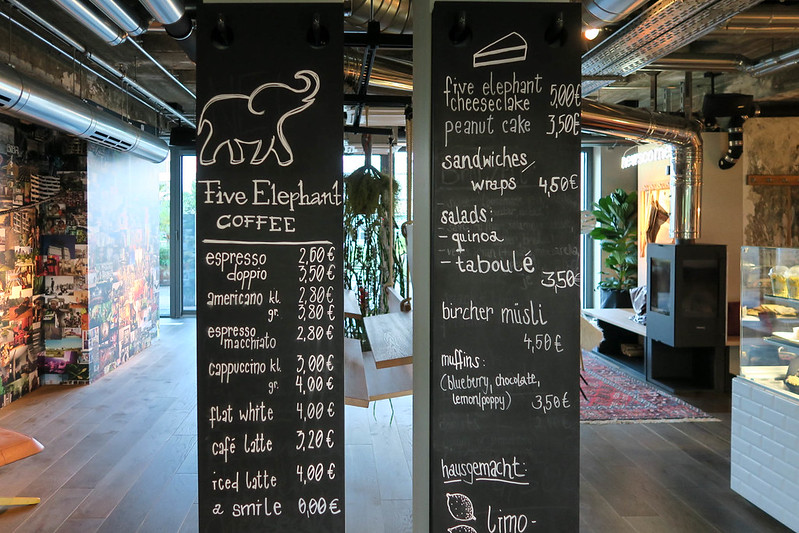 Five Elephant
COFFEE
espresso 2,60€
doppio 3,50€
americano kl. 2,80€
gr. 3,80€
espresso
macchiato 2,80€
cappuccino kl. 3,00€
gr. 4,00€
flat white 4,00€
café latte 3,20€
iced latte 4,00€
a smile 0,00€
five elephant
cheesecake 5,00€
peanut cake 3,50€
sandwiches/
wraps 4,50€
salads:
- quinoa
- taboulé
3,50€
bircher müsli
4,50€
muffins:
(blueberry, chocolate,
lemon/poppy) 3,50€
hausgemacht:
limo-